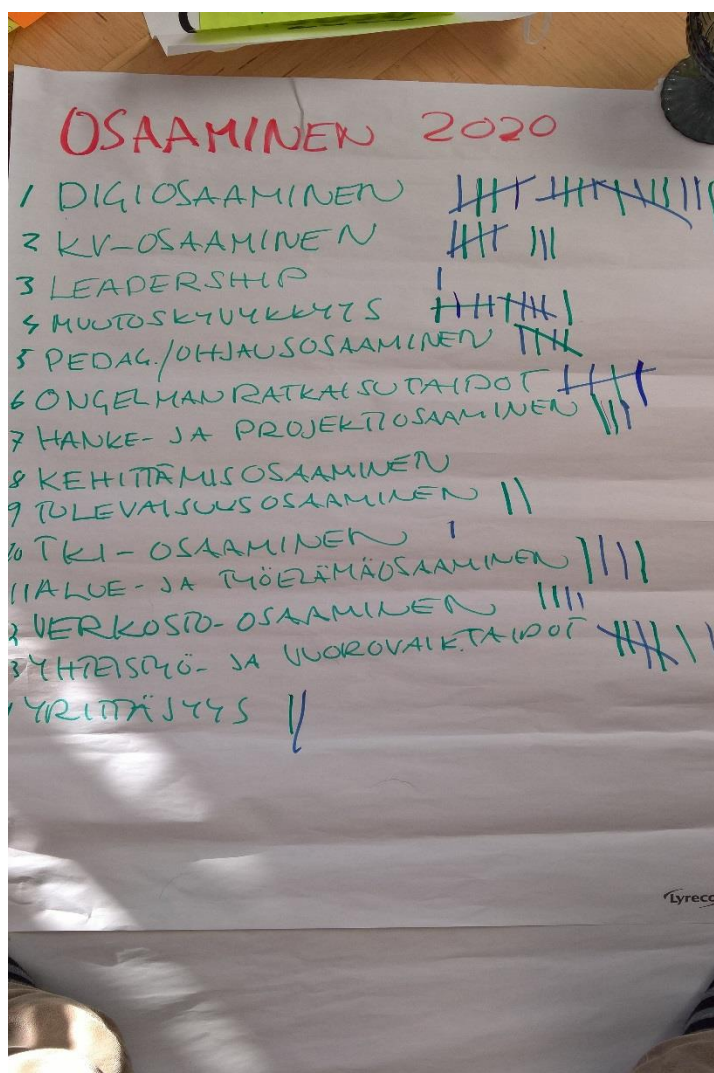 OSAAMINEN 2020
1 DIGIOSAAMINEN
2 KV-OSAAMINEN
3 LEADERSHIP
4 MUUTOSKYVYKKYYS
5 PEDAG./OHJAUSOSAAMINEN
6 ONGELMANRATKAISUTAIDOT
7 HANKE- JA PROJEKTIOSAAMINEN
8 KEHITTÄMISOSAAMINEN
9 TULEVAISUUSOSAAMINEN
10 TKI-OSAAMINEN
11 ALUE- JA TYÖELÄMÄOSAAMINEN
2 VERKOSTO-OSAAMINEN
3 YHTEISTYÖ- JA VUOROVAIK.TAIDOT
YRITTÄJYYS
Lyreco